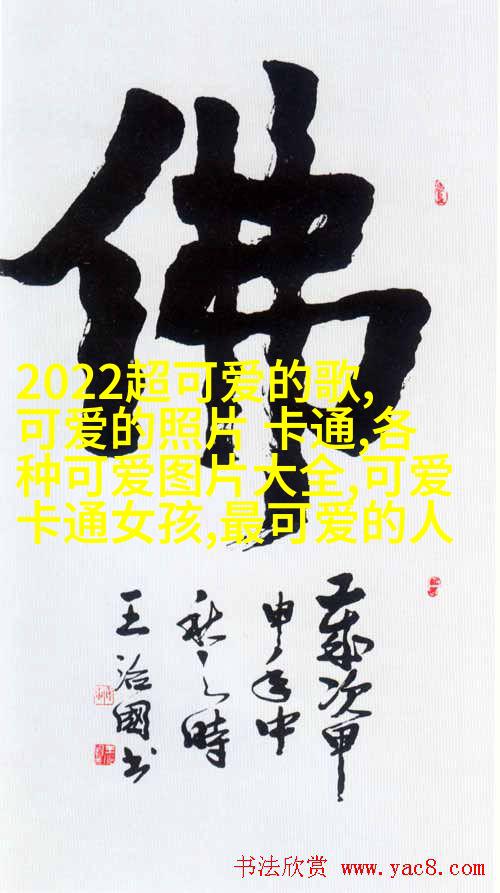 佛
2022超可爱的歌,
可爱的照片 卡通,各
种可爱图片大全,可爱
卡通女孩,最可爱的人
歲次甲
申年中
秋之時
王治國书
书法欣赏 www.yac8.com